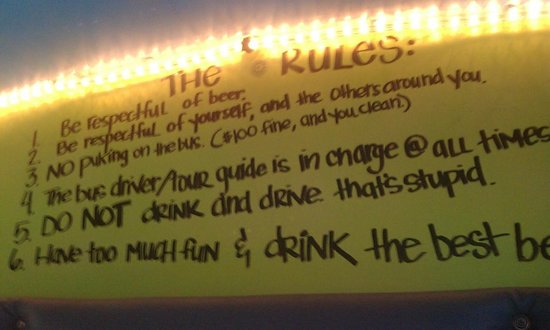 THE RULES:
1. Be respectful of beer.
2. Be respectful of yourself, and the others around you.
3. NO puking on the bus. ($100 fine, and you clean.)
4. The bus driver/tour guide is in charge @ ALL times
5. DO NOT drink and drive. that's stupid.
6. Have too MUCH fun & dRINK the best be